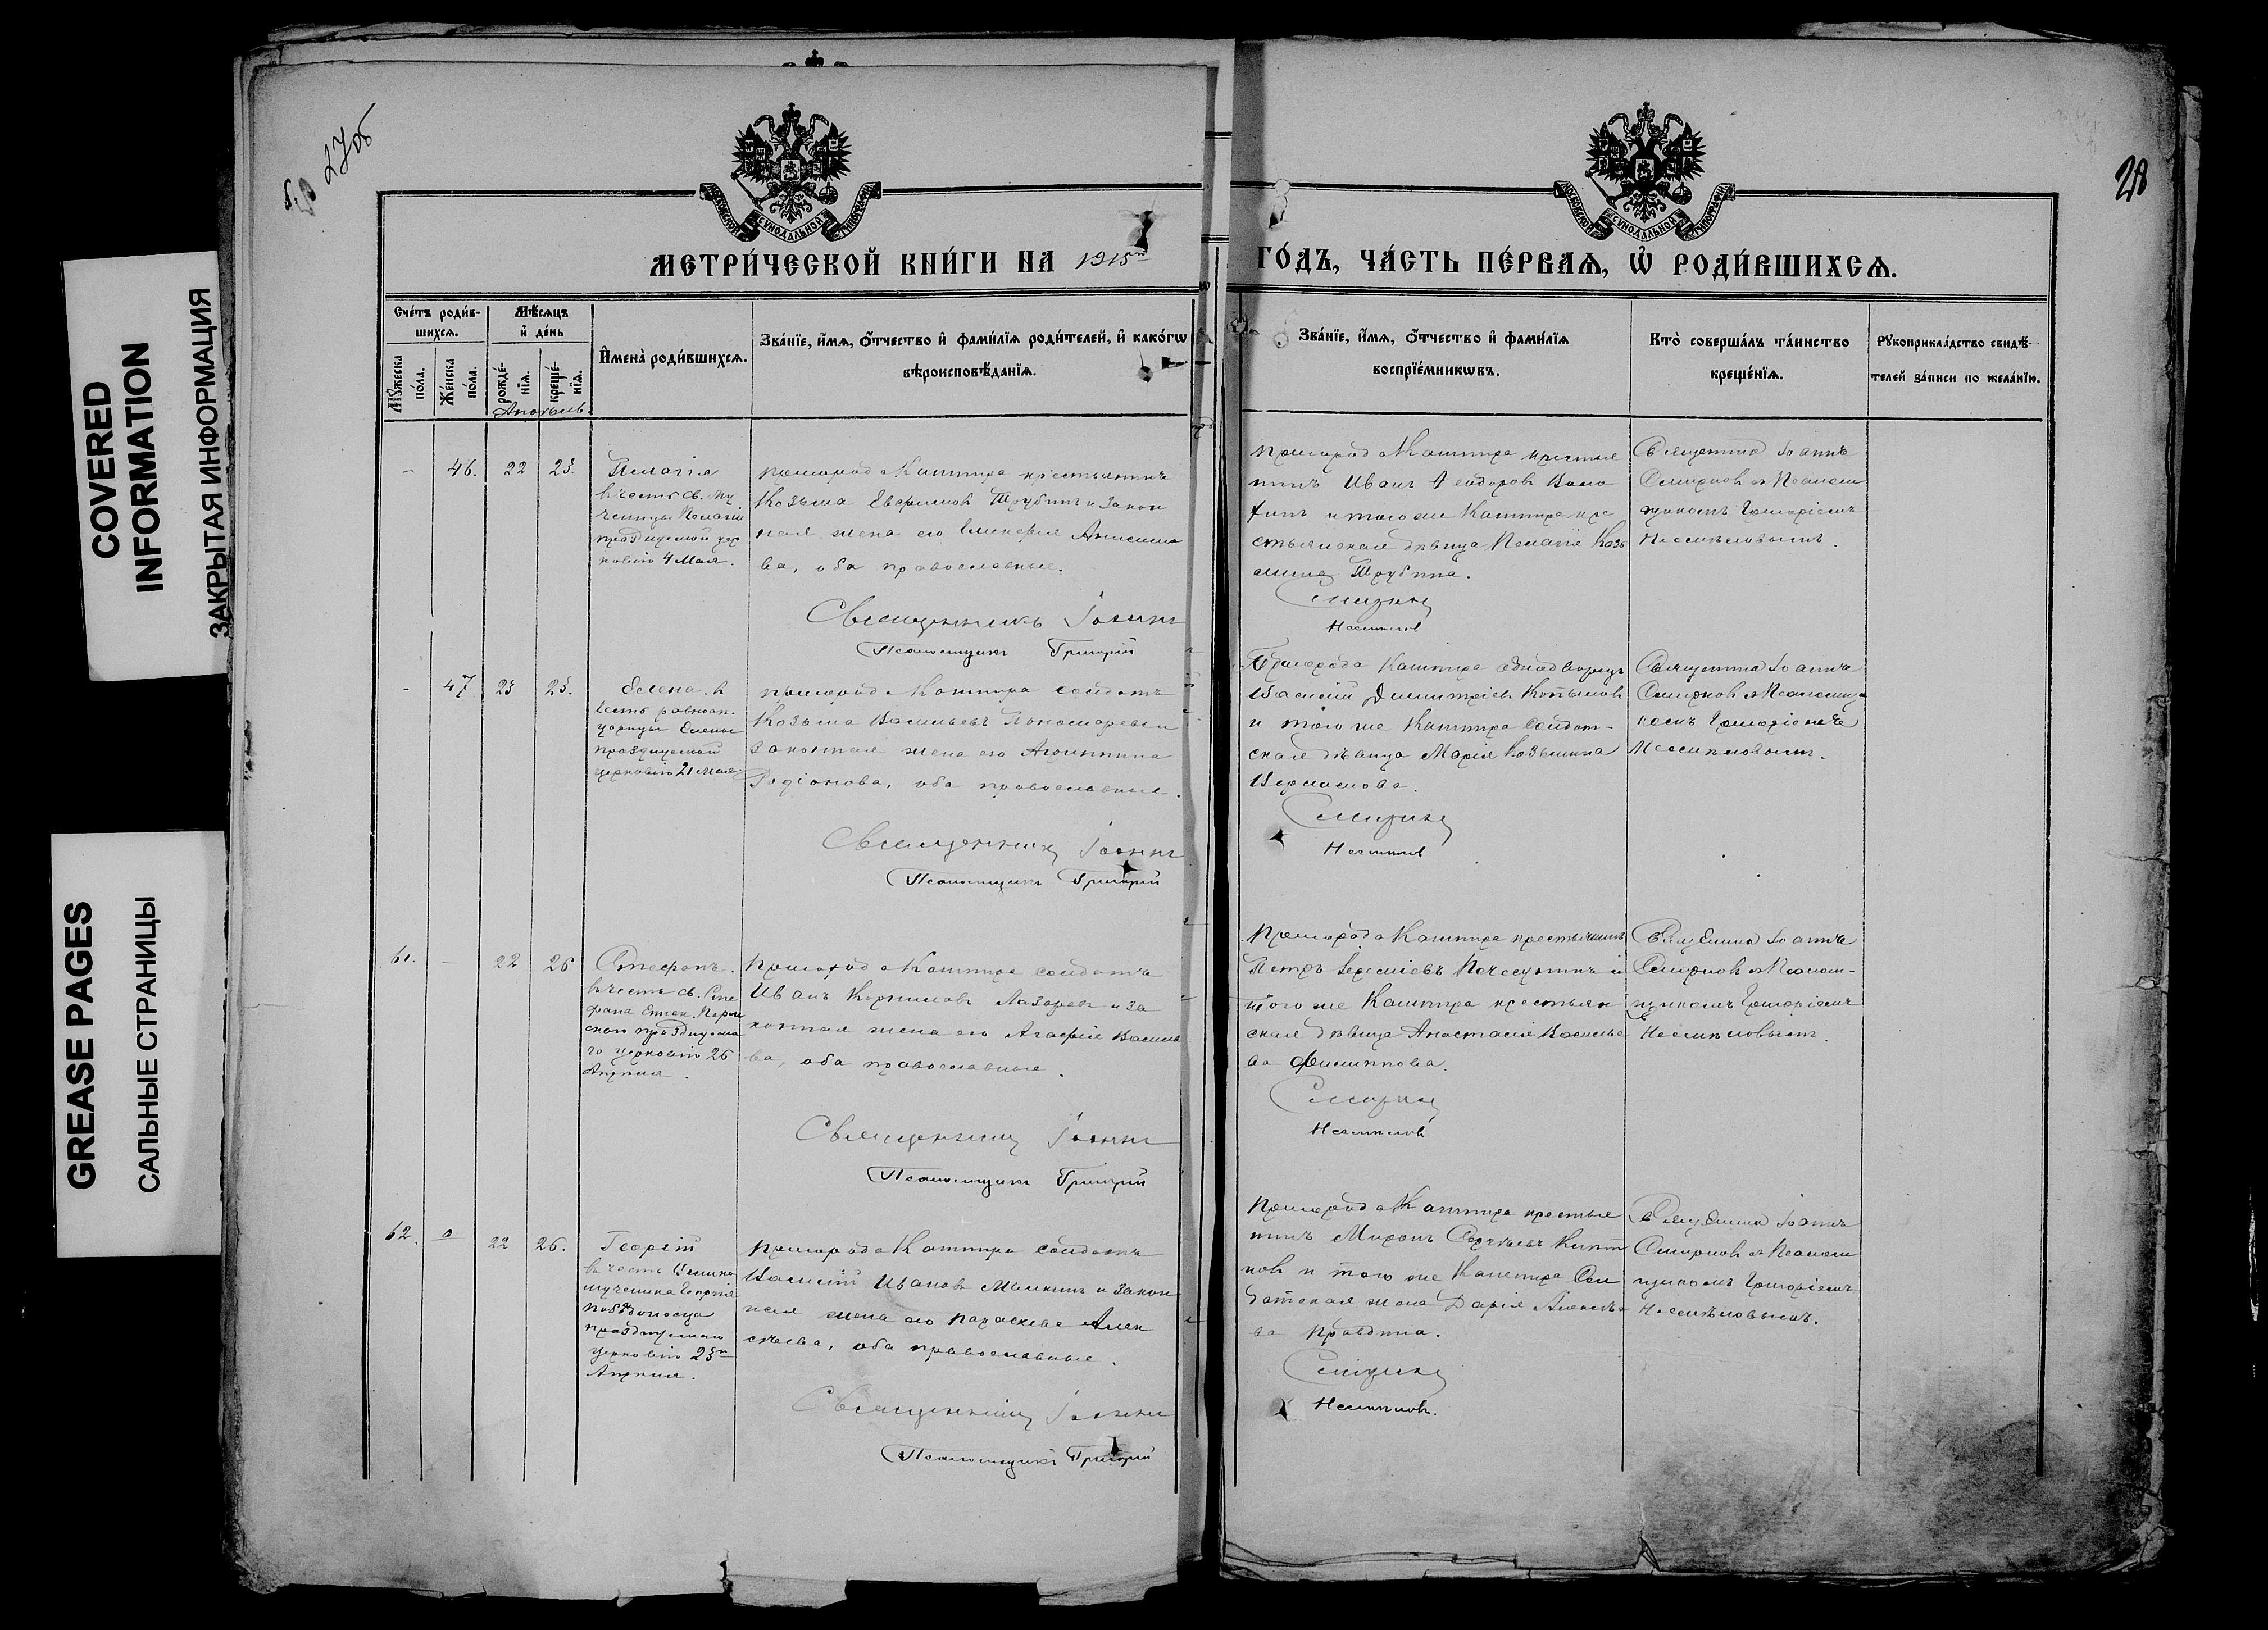 COVERED
INFORMATION
ЗАКРЫТАЯ ИНФОРМАЦИЯ
GREASE PAGES
САЛЬНЫЕ СТРАНИЦЫ
27об
28
МОСКОВСКОЙ СѴНОДАЛЬНОЙ ТИПОГРАФІИ
МОСКОВСКОЙ СѴНОДАЛЬНОЙ ТИПОГРАФІИ
МЕТРИ́ЧЕСКОЙ КНИ́ГИ НА 1915й ГО́ДЪ, ЧА́СТЬ ПЕ́РВАѦ, Ѡ҆ РОДИ́ВШИХСѦ.
Сче́тъ роди́в-
шихсѧ.
Мꙋ́жеска
по́ла.
Же́нска
по́ла.
Мѣ́сѧцъ
и҆ де́нь
рожде́-
нїѧ.
креще́-
нїѧ.
И҆мена̀ роди́вшихсѧ.
Зва́нїе, и҆́мѧ, ѻ҆́тчество и҆ фами́лїѧ роди́телей, и҆ како́гѡ
вѣроисповѣ́данїѧ.
Зва́нїе, и҆́мѧ, ѻ҆́тчество и҆ фами́лїѧ
воспрїе́мникѡвъ.
Кто̀ соверша́лъ та́инство
креще́нїѧ.
Рꙋкоприкла́дство свидѣ́-
телей за́писи по жела́нїю.
Апрѣль.
- 46. 22 23.
Пелагія
въ честь св. му
ченицы Пелагіи
празднуемой цер
ковію 4 Мая.
пригорода Кашпира крестьянинъ
Козьма Евфимовъ Трубинъ и закон
ная жена его Гликерія Анисимо
ва, оба православные.
Священникъ Іоаннъ
Псаломщикъ Григорій
пригорода Кашпира крестья
нинъ Иванъ Феодоровъ
и того же Кашпира кре
стьянская дѣвица Пелагія Козь
мина Трубина.
Смирнов
Несмѣловъ
Священник Іоаннъ
Смирнов съ Псалом
щикомъ Григоріемъ
Несмѣловымъ.
- 47. 23 23.
Елена. въ
честь равноап.
царицы Елены
празднуемой
церковію 21 Мая.
пригорода Кашпира солдатъ
Козьма Васильевъ Пономаревъ и
законная жена его Агрипина
Родіонова, оба православные.
Священник Іоаннъ
Псаломщикъ Григорій
Пригорода Кашпира
Василій Димитріевъ Копыловъ
и того же Кашпира солдат-
ская дѣвица Марія Козьмина
Смирнов
Несмѣловъ
Священник Іоаннъ
Смирнов съ Псаломщи
комъ Григоріемъ
Несмѣловымъ.
61. - 22 26
Стефанъ.
въ честь св. Сте
фана Епископ. Перм
скаго празднуема
го церковію 26
Апрѣля.
пригорода Кашпира солдатъ
Иванъ Корниловъ Лазаревъ и за
конная жена его Агафія Василье
ва, оба православные.
Священник Іоаннъ
Псаломщикъ Григорій
пригорода Кашпира крестьянинъ
Петръ и
того же Кашпира крестьян
ская дѣвица Анастасія Василье
ва Филиппова.
Смирнов
Несмѣловъ
Священник Іоаннъ
Смирнов съ Псалом-
щикомъ Григоріемъ
Несмѣловымъ.
62. - 22 26.
Георгій
въ честь Велико
мученика Георгія
Побѣдоносца
празднуемаго
церковію 23го
Апрѣля.
пригорода Кашпира солдатъ
Василій Ивановъ Малкинъ и закон
ная жена его Параскева Алек
сѣева, оба православные.
Священник Іоаннъ
Псаломщикъ Григорій
пригорода Кашпира крестья
нинъ Миронъ Сергѣевъ
и того же Кашпира Сол
датская жена Дарія Алексѣе
ва Правдина.
Смирнов
Несмѣловъ.
Священник Іоаннъ
Смирнов съ Псалом
щикомъ Григоріемъ
Несмѣловымъ.